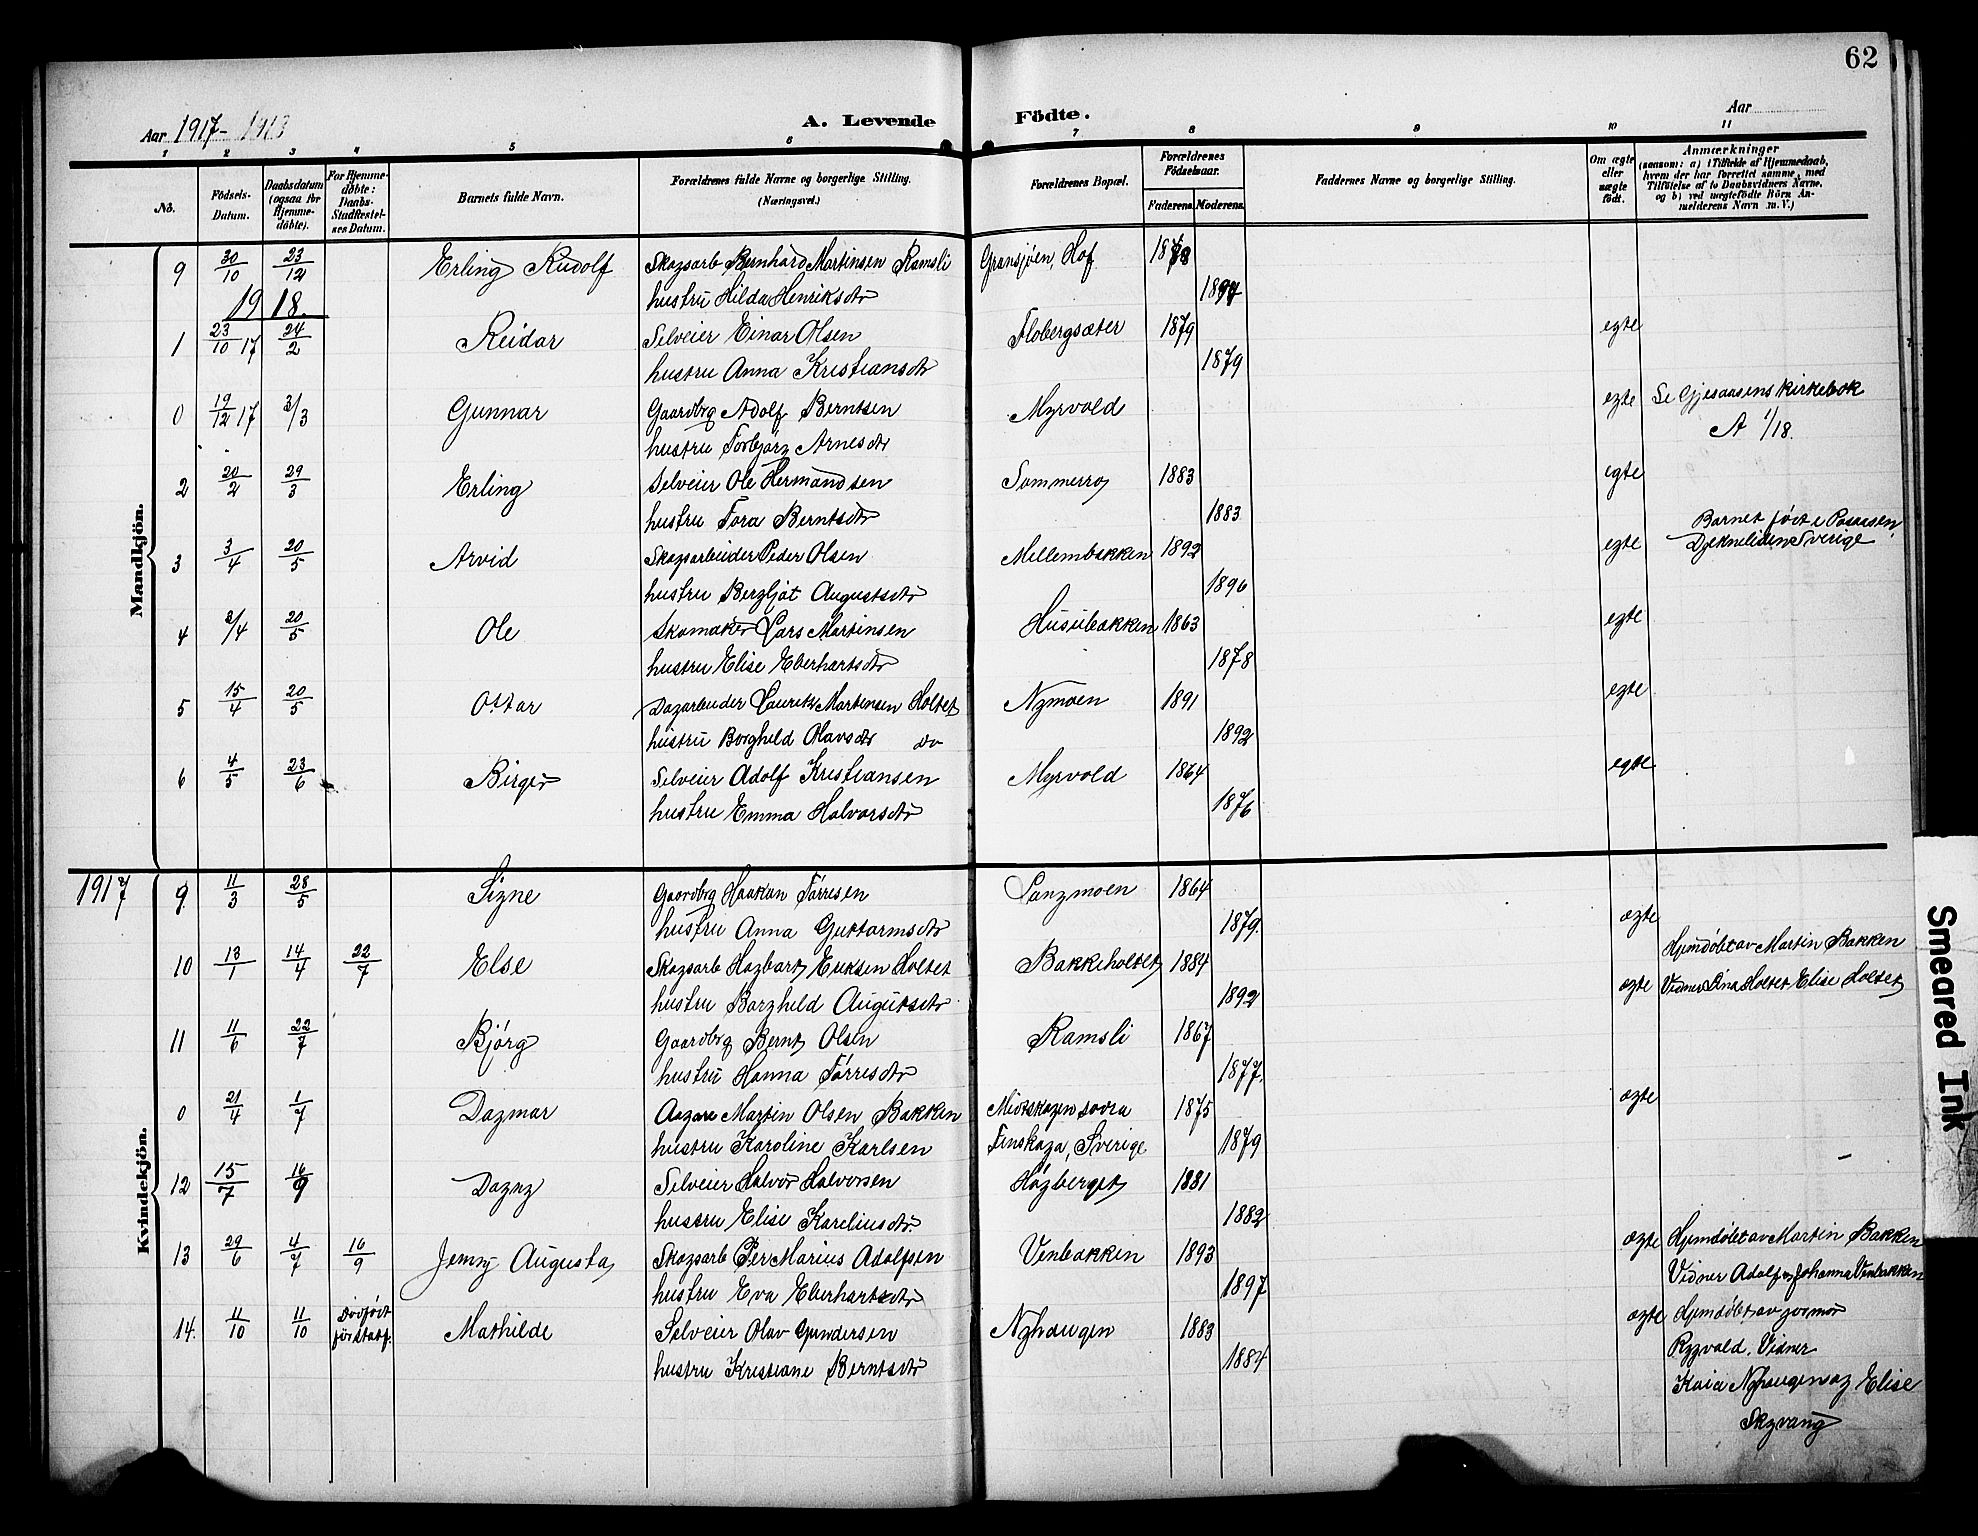 62
Aar 1917-1918
A. Levende Födte.
Aar
1 2 3 4 5 6 7 8 9 10 11
No.
Födsels-Datum.
Daabsdatum (ogsaa for Hjemmedöbte).
For Hjemmedöbte: Daabs-Stadfæstelses Datum.
Barnets fulde Navn.
Forældrenes fulde Navne og borgerlige Stilling.
(Næringsvei.)
Forældrenes Bopæl.
Forældrenes Födselsaar.
Faderens Moderens
Faddernes Navne og borgerlige Stilling.
Om ægte eller uægte födt.
Anmærkninger
(saasom: a) i Tilfælde af Hjemmedaab, hvem der har forrettet samme, med Tilföielse af to Daabsvidners Navne, og b) ved uægtefödte Börn Anmelderens Navn m. V.)
Mandkjön.
9 30/10 23/12 Erling Rudolf Skogsarb Bernhard Martinsen Ramsli Gransjøen, Hof
hustru Hilda Henriksdtr
1918.
1 23/10 17 24/2 Reidar Selveier Einar Olsen Flobergsæter 1879 egte
hustru Anna Kristiansdtr 1879
0 19/12 17 3/3 Gunnar Gaardbrg Adolf Berntsen Myrvold egte Se Gjesaasens kirkebok
hustru Torbjørg Arnesdtr A 1/18.
2 20/2 29/3 Erling Selveier Ole Hermandsen Sommerro 1883 egte
hustru Tora Berntsdtr 1883
3 3/4 20/5 Arvid Skogsarbeider Peder Olsen Mellembakken 1892 egte Barnet født i
hustru Bergljot Augustsdtr 1896 Sverige
4 2/4 20/5 Ole Skomaker Lars Martinsen Husubakken 1863 egte
hustru Elise Eberhartsdtr 1878
5 15/4 20/5 Ottar Dagarbeider Lauritz Martinsen Holtet Nymoen 1891 egte
hustru Borghild Olavsdtr do 1892
6 4/5 23/6 Birger Selveier Adolf Kristiansen Myrvold 1864 egte
hustru Emma Halvorsdtr 1876
Kvindekjön.
1917 9 11/3 28/5 Signe Gaardbrg Haakan Tørresen Langmoen 1864
hustru Anna Guttormsdtr 1879. ægte
10 13/1 14/4 22/7 Else Skogsarb Hagbart Eriksen Holtet Bakkeholtet 1884 Hjemdøbt av Martin Bakken
hustru Borghild Augustsdtr 1892 ægte Vidner Lina Holtet Elise Holtet
11 11/6 22/7 Bjørg Gaardbrg Bernt Olsen Ramsli 1867
hustru Hanna Tørresdtr 1877.
0 21/4 1/7 Dagmar Martin Olsen Bakken Midtskogen sodra 1875 ægte
hustru Karoline Karlsen Finskoga, Sverige 1879
12 15/7 16/9 Dagny Selveier Halvor Halvorsen Høgberget 1881
hustru Elise Kareliusdtr 1882
13 29/6 4/7 16/9 Jenny Augusta Skogsarb Per Marius Adolfsen Venbakken 1893 ægte Hjemdøbt av Martin Bakken
hustru Eva Eberhartsdtr 1897 Vidner Adolf og Johanna Venbakken
14. 11/10 11/10 Mathilde Selveier Olav Gundersen Nyhaugen 1883 ægte Hjemdøbt av jormor
hustru Kristiane Berntsdtr 1884 Rygvold. Vidner
Kaia Nyhaugen og Elise
Skyvang
Smeared Ink